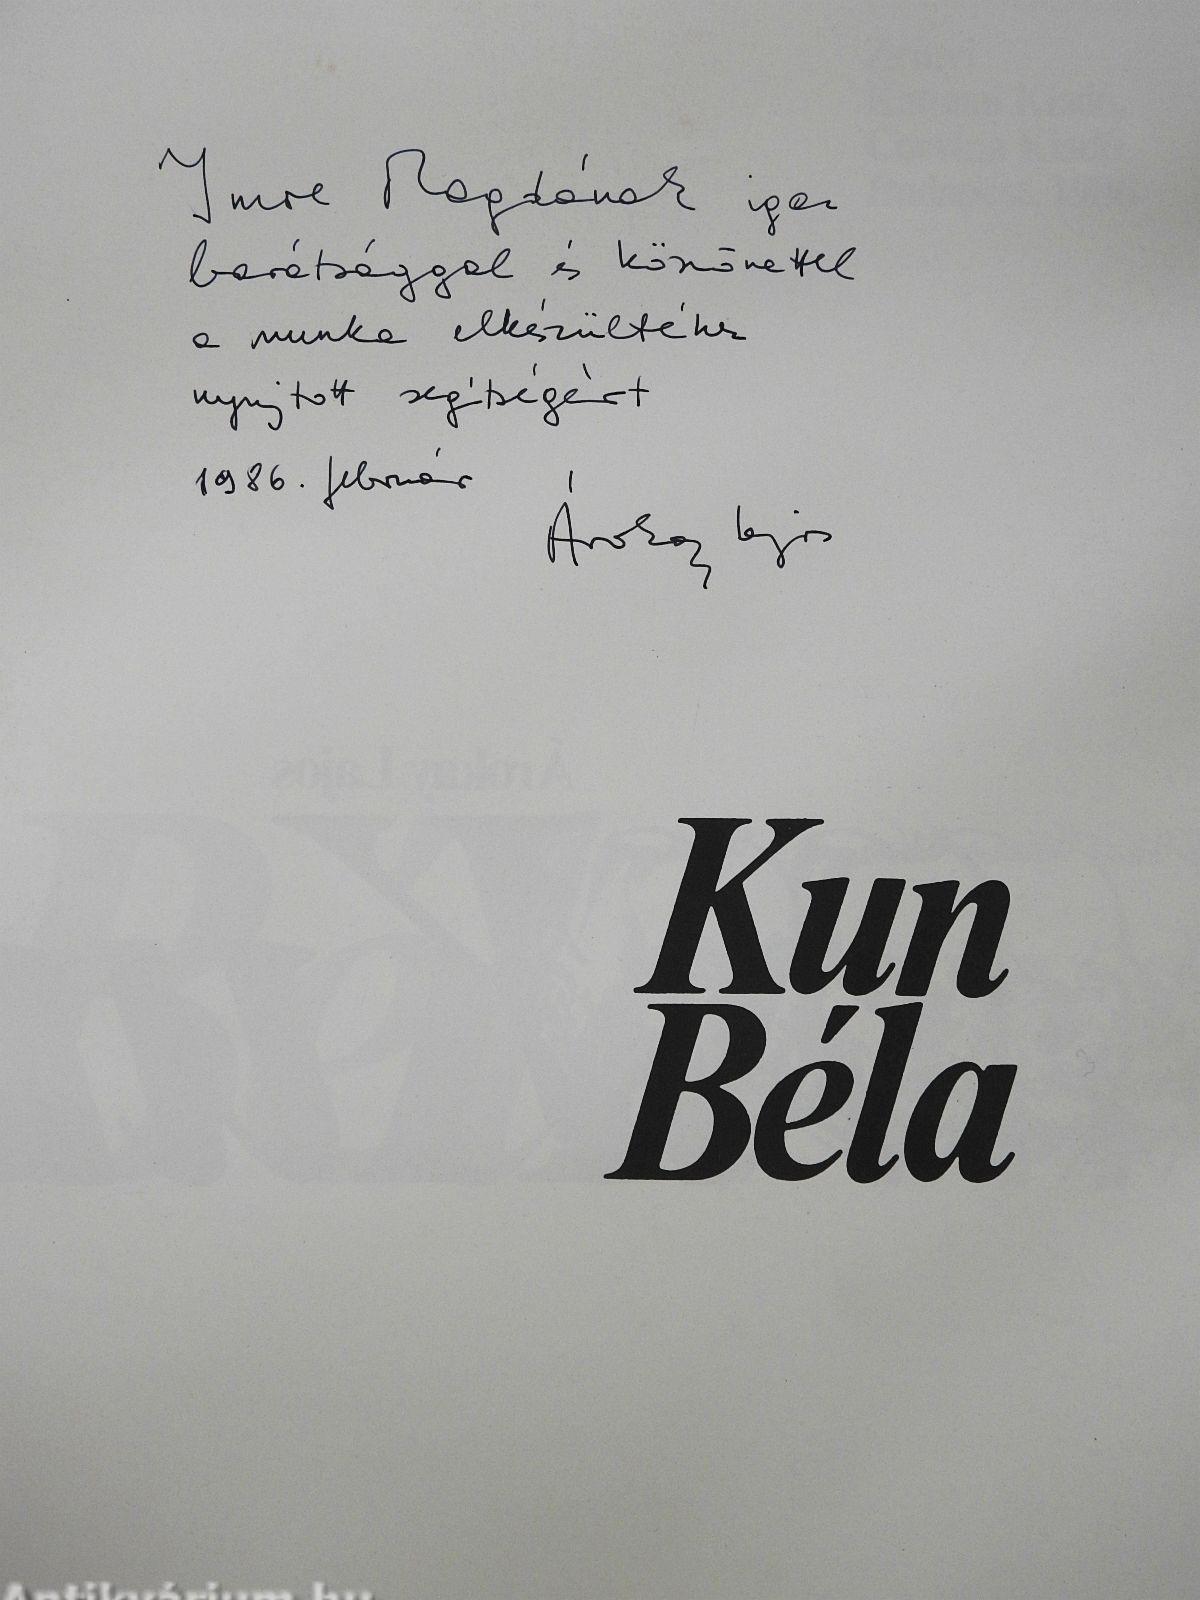 Imre Magdának igaz
barátsággal és köszönettel
a munka elkészültéhez
nyujtott segítségért
1986. február
Árokay Lajos
Árokay Lajos
Kun
Béla
Antikvárium.hu